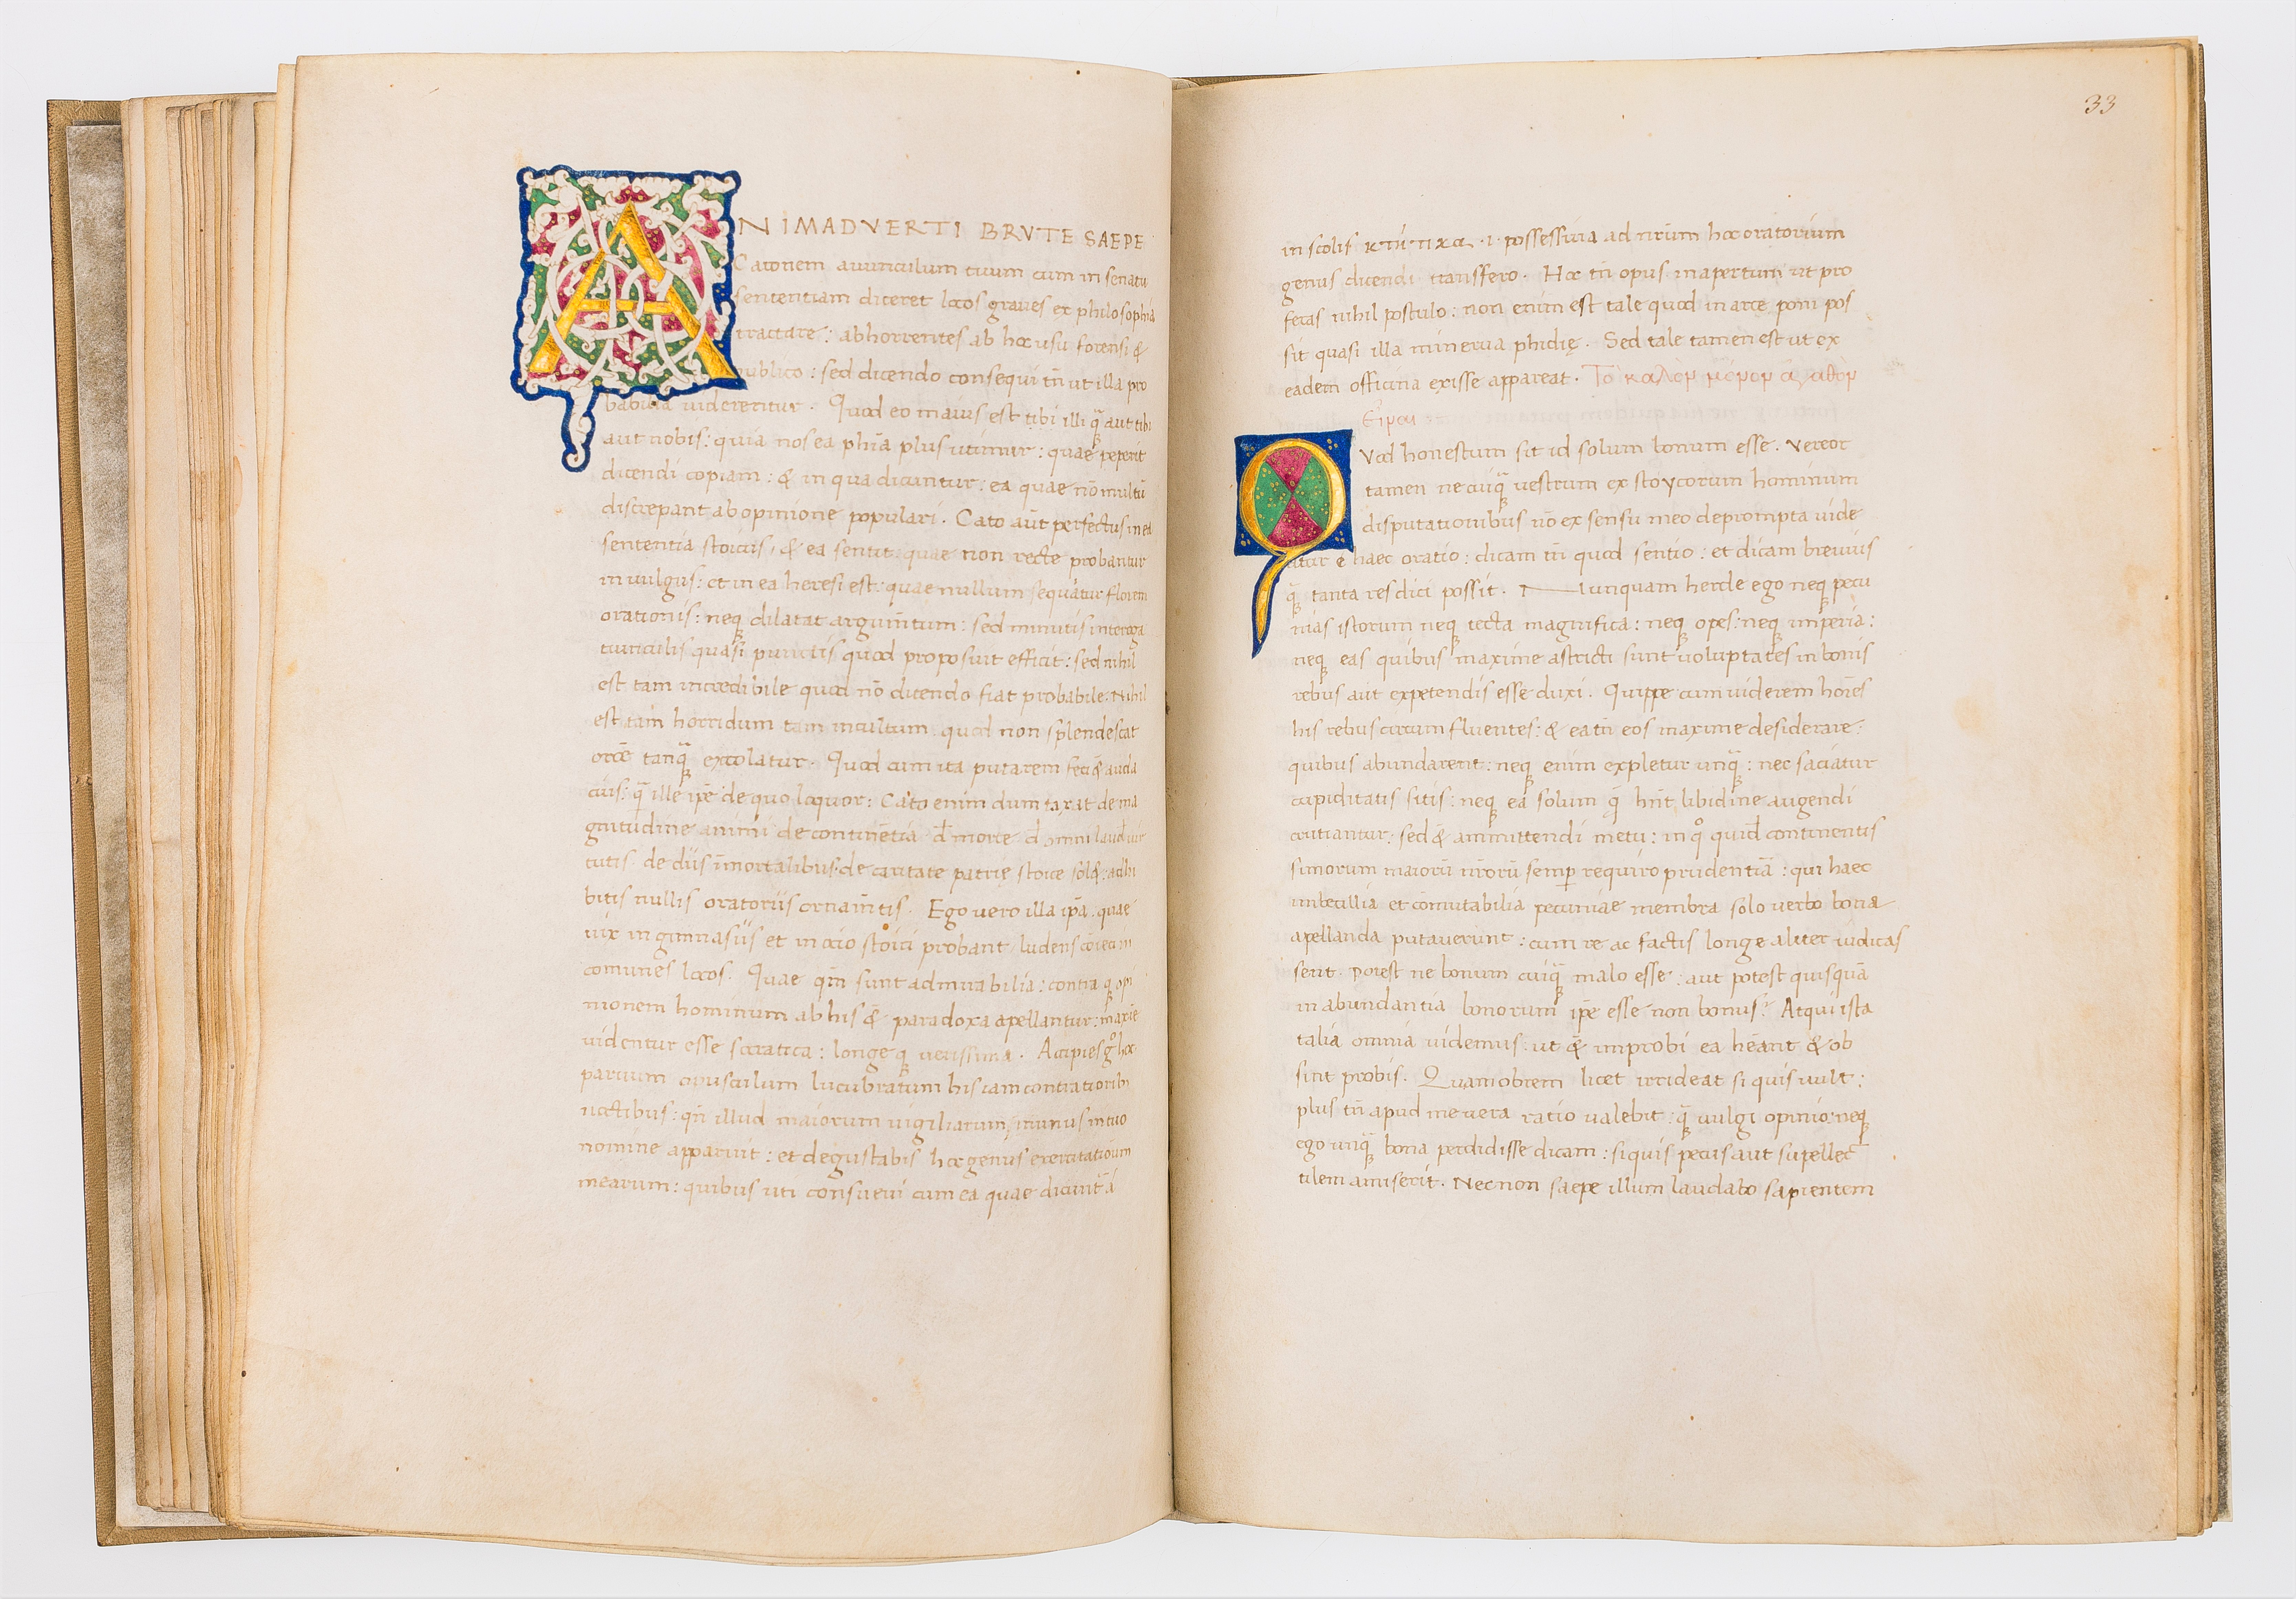 ANIMADVERTI BRVTE SAEPE
Catonem auunculum tuum cum in senatu
sententiam diceret locos graues ex philosophia
tractare: abhorrentes ab hoc usu forensi &
publico: sed dicendo consequi tn̄ ut illa pro
babilia uiderentur. Quod eo maius est tibi illi q̄ aut tibi
aut nobis: quia nos ea phīa plus utimur: quae peperit
dicendi copiam: & in qua dicuntur: ea quae nō multū
discrepant ab opinione populari. Cato aūt perfectus in ea
sententia stoicus, & ea sentit quae non recte probantur
in uulgus: et in ea heresi est: quae nullum sequatur florem
orationis: neq dilatat argum̄tum: sed minutis interoga
tiunculis quasi punctis quod proposuit efficit: sed nihil
est tam incredibile quod nō dicendo fiat probabile. Nihil
est tam horridum tam incultum quod non splendescat
orōe tanq̄ excolatur. Quod cum ita putarem feci & auda
cius: q̄ ille ip̄e de quo loquor: Cato enim dumtaxat de ma
gnitudine animi de continētia d̄ morte d̄ omni laud uir
tutis de diis īmortalibus. de caritate patrię stoice sol&: adhi
bitis nullis oratoriis ornam̄tis. Ego uero illa ip̄a. quae
uix in gimnasiis et in ocio stoici probant ludens cōieci in
comunes locos. Quae qm̄ sunt admirabilia: contra q opi
nionem hominum ab his & paradoxa apellantur: maxīe
uidentur esse socratica: longe q uerissima. Accipies gͦ hoc
paruum opusculum lucubratum his iam contractiorib
noctibus: qn̄ illud maiorum uigiliarum munus in tuo
nomine apparuit: et degustabis hoc genus exercitationum
mearum: quibus uti consueui cum ea quae dicunt̄
33
in scolis κτητικα .i. possessiua ad nr̄um hoc oratorium
genus dicendi transfero. Hoc tn̄ opus in apertum ut pro
feras nihil postulo: non enim est tale quod in arce poni pos
sit quasi illa minerua phidię. Sed tale tamen est ut ex
eadem officina exisse appareat. Τὸ καλὸν μόνον ἀγαθὸν
Εἶναι
QVod honestum sit id solum bonum esse. Vereor
tamen ne cuiq̄ uestrum ex stoycorum hominum
disputationibus nō ex sensu meo deprompta uide
atur ē haec oratio: dicam tn̄ quod sentio: et dicam breuius
q̄ tanta res dici possit. Nunquam hercle ego neq pecu
nias istorum neq tecta magnifica: neq opes: neq imperia:
neq eas quibus maxime astricti sunt uoluptates in bonis
rebus aut expetendis esse duxi. Quippe cum uiderem hoīes
his rebus circumfluentes: & ea tn̄ eos maxime desiderare:
quibus abundarent: neq enim expletur unq̄: nec saciatur
cupiditatis sitis: neq ea solum q̄ hn̄t libidine augendi
crutiantur: sed & ammittendi metu: in qͦ quid continentis
simorum maiorū nr̄orū semp requiro prudentiā: qui haec
imbecillia et comutabilia pecuniae membra solo uerbo bona
apellanda putauerunt: cum re ac factis longe aliter iudicas
sent. Potest ne bonum cuiq̄ malo esse: aut potest quisquā
in abundantia bonorum ip̄e esse non bonus? Atqui ista
talia omnia uidemus: ut & improbi ea hēant & ob
sint probis. Quamobrem licet irrideat si quis uult:
plus tn̄ apud me uera ratio ualebit: q̄ uulgi opinio: neq
ego unq̄ bona perdidisse dicam: si quis pecus aut supellec
tilem amiserit. Nec non saepe illum laudabo sapientem